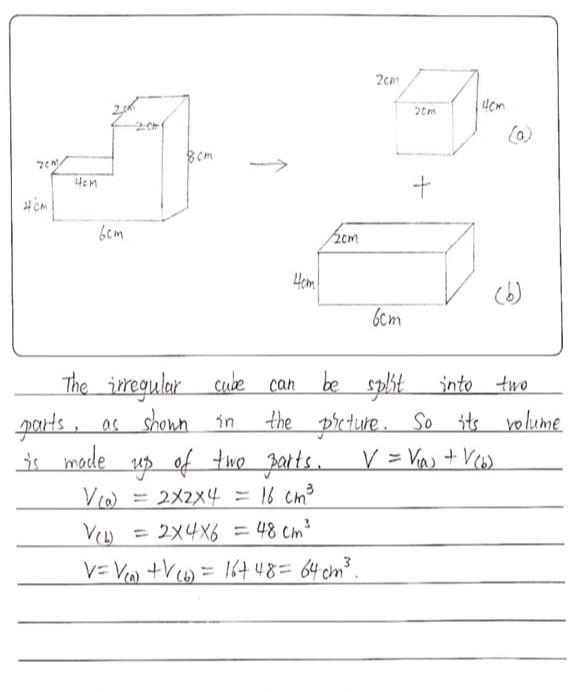 2cm
2cm
2cm
4cm
4cm
8cm
6cm
2cm
2cm
4cm
(a)
+
2cm
4cm
6cm
(b)
The irregular cube can be split into two
parts, as shown in the picture. So its volume
is made up of two parts. V = V(a) + V(b)
V(a) = 2×2×4 = 16 cm³
V(b) = 2×4×6 = 48 cm³
V = V(a) + V(b) = 16+48 = 64 cm³.